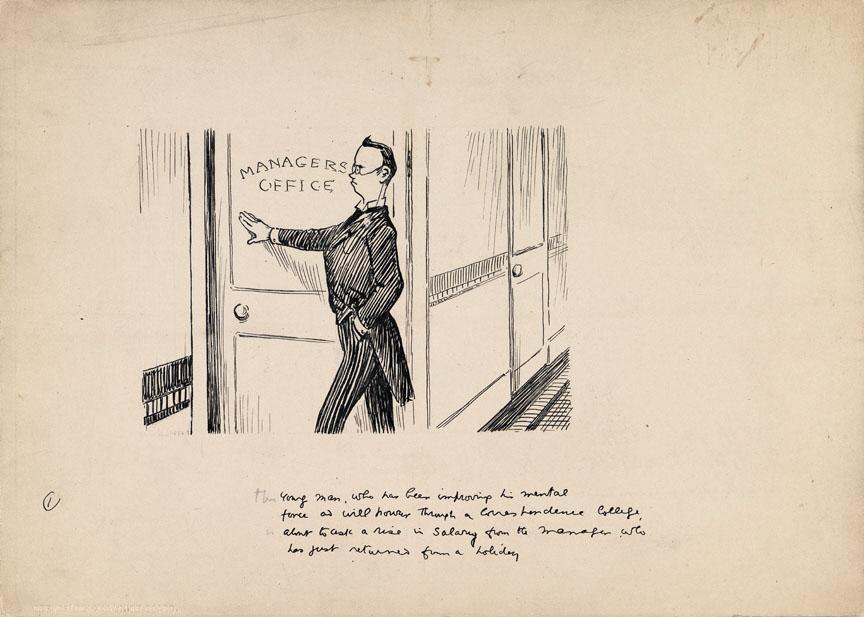 MANAGERS
OFFICE
①
the Young man, who has been improving his mental
force and will power through a Correspondence College,
about to ask a rise in Salary from the Manager who
has just returned from a holiday